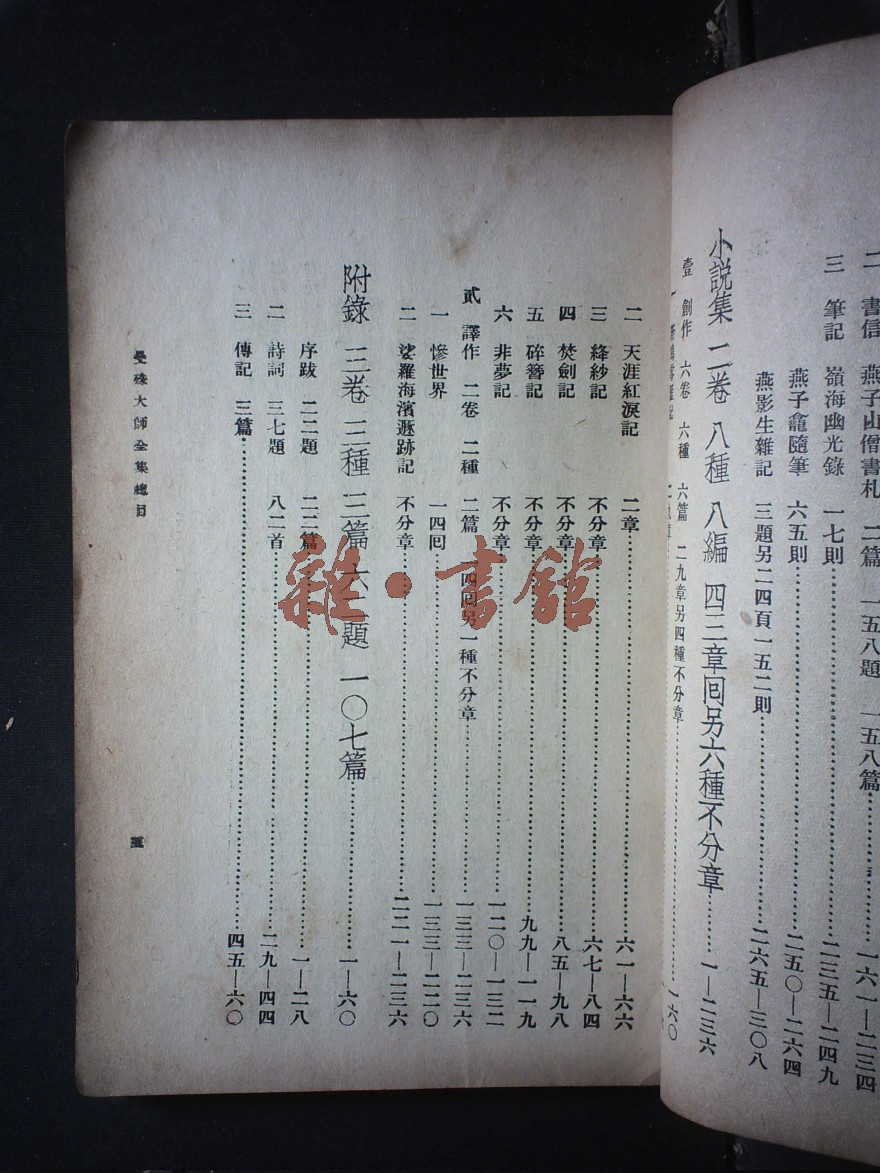 二 書信 燕子山僧書札 二篇 一五八題 一五八篇……一六一—二三四
三 筆記 嶺海幽光錄 一七則……二三五—二四九
燕子龕隨筆 六五則……二五〇—二六四
燕影生雜記 三題另二四頁一五二則……二六五—三〇八
小說集 二卷 八種 八編 四三章囘另六種不分章……一—二三六
壹 創作 六卷 六種 六篇 二九章另四種不分章……一六〇
二 天涯紅淚記 二章……六一—六六
三 絳紗記 不分章……六七—八四
四 焚劍記 不分章……八五—九八
五 碎簪記 不分章……九九—一一九
六 非夢記 不分章……一二〇—一三二
貳 譯作 二卷 二種 二篇 一四囘另一種不分章……一三三—二三六
一 慘世界 一四囘……一三三—二二〇
二 娑羅海濱遯跡記 不分章……二二一—二三六
附錄 三卷 三種 三篇 六二題 一〇七篇……一—六〇
序跋 二二題 二二篇……一—二八
二 詩詞 三七題 八二首……二九—四四
三 傳記 三篇……四五—六〇
曼殊大師全集總目
五
雜·書館